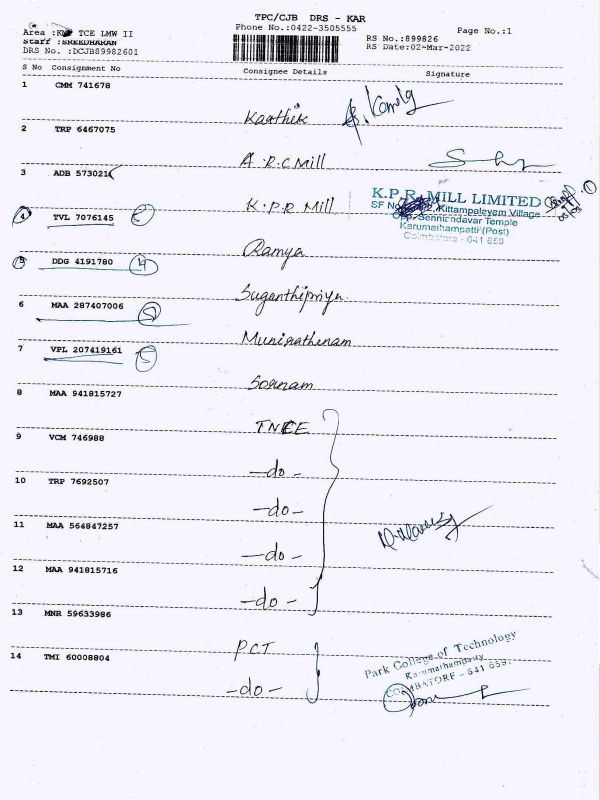 TPC/CJB DRS - KAR
Phone No.:0422-3505555
Page No.:1
Area : TCE LMW II
RS No.:899826
Staff :SREEDHARAN
RS Date:02-Mar-2022
DRS No. :DCJB89982601
S No Consignment No Consignee Details Signature
1 CMM 741678
Karthik
2 TRP 6467075
A.R.C Mill
3 ADB 573021
K.P.R Mill
K.P.R. MILL LIMITED
SF No Kittampalayam Village
Opp. Sennandavar Temple
Karumathampatti (Post)
Coimbatore - 641 659
4 TVL 7076145
Ramya
5 DDG 4191780
Suganthipriya
6 MAA 287407006
Munirathenam
7 VPL 207419161
Sornam
8 MAA 941815727
TNCE
9 VCM 746988
-do-
10 TRP 7692507
-do-
11 MAA 564847257
-do-
12 MAA 941815716
-do-
13 MNR 59633986
PCT
14 TMI 60008804
-do-
Park College of Technology
Karumathampatty
COIMBATORE - 641 659.